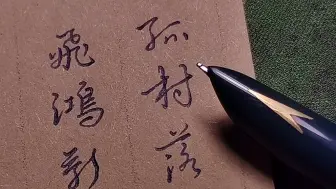 孤村落
飛鴻影